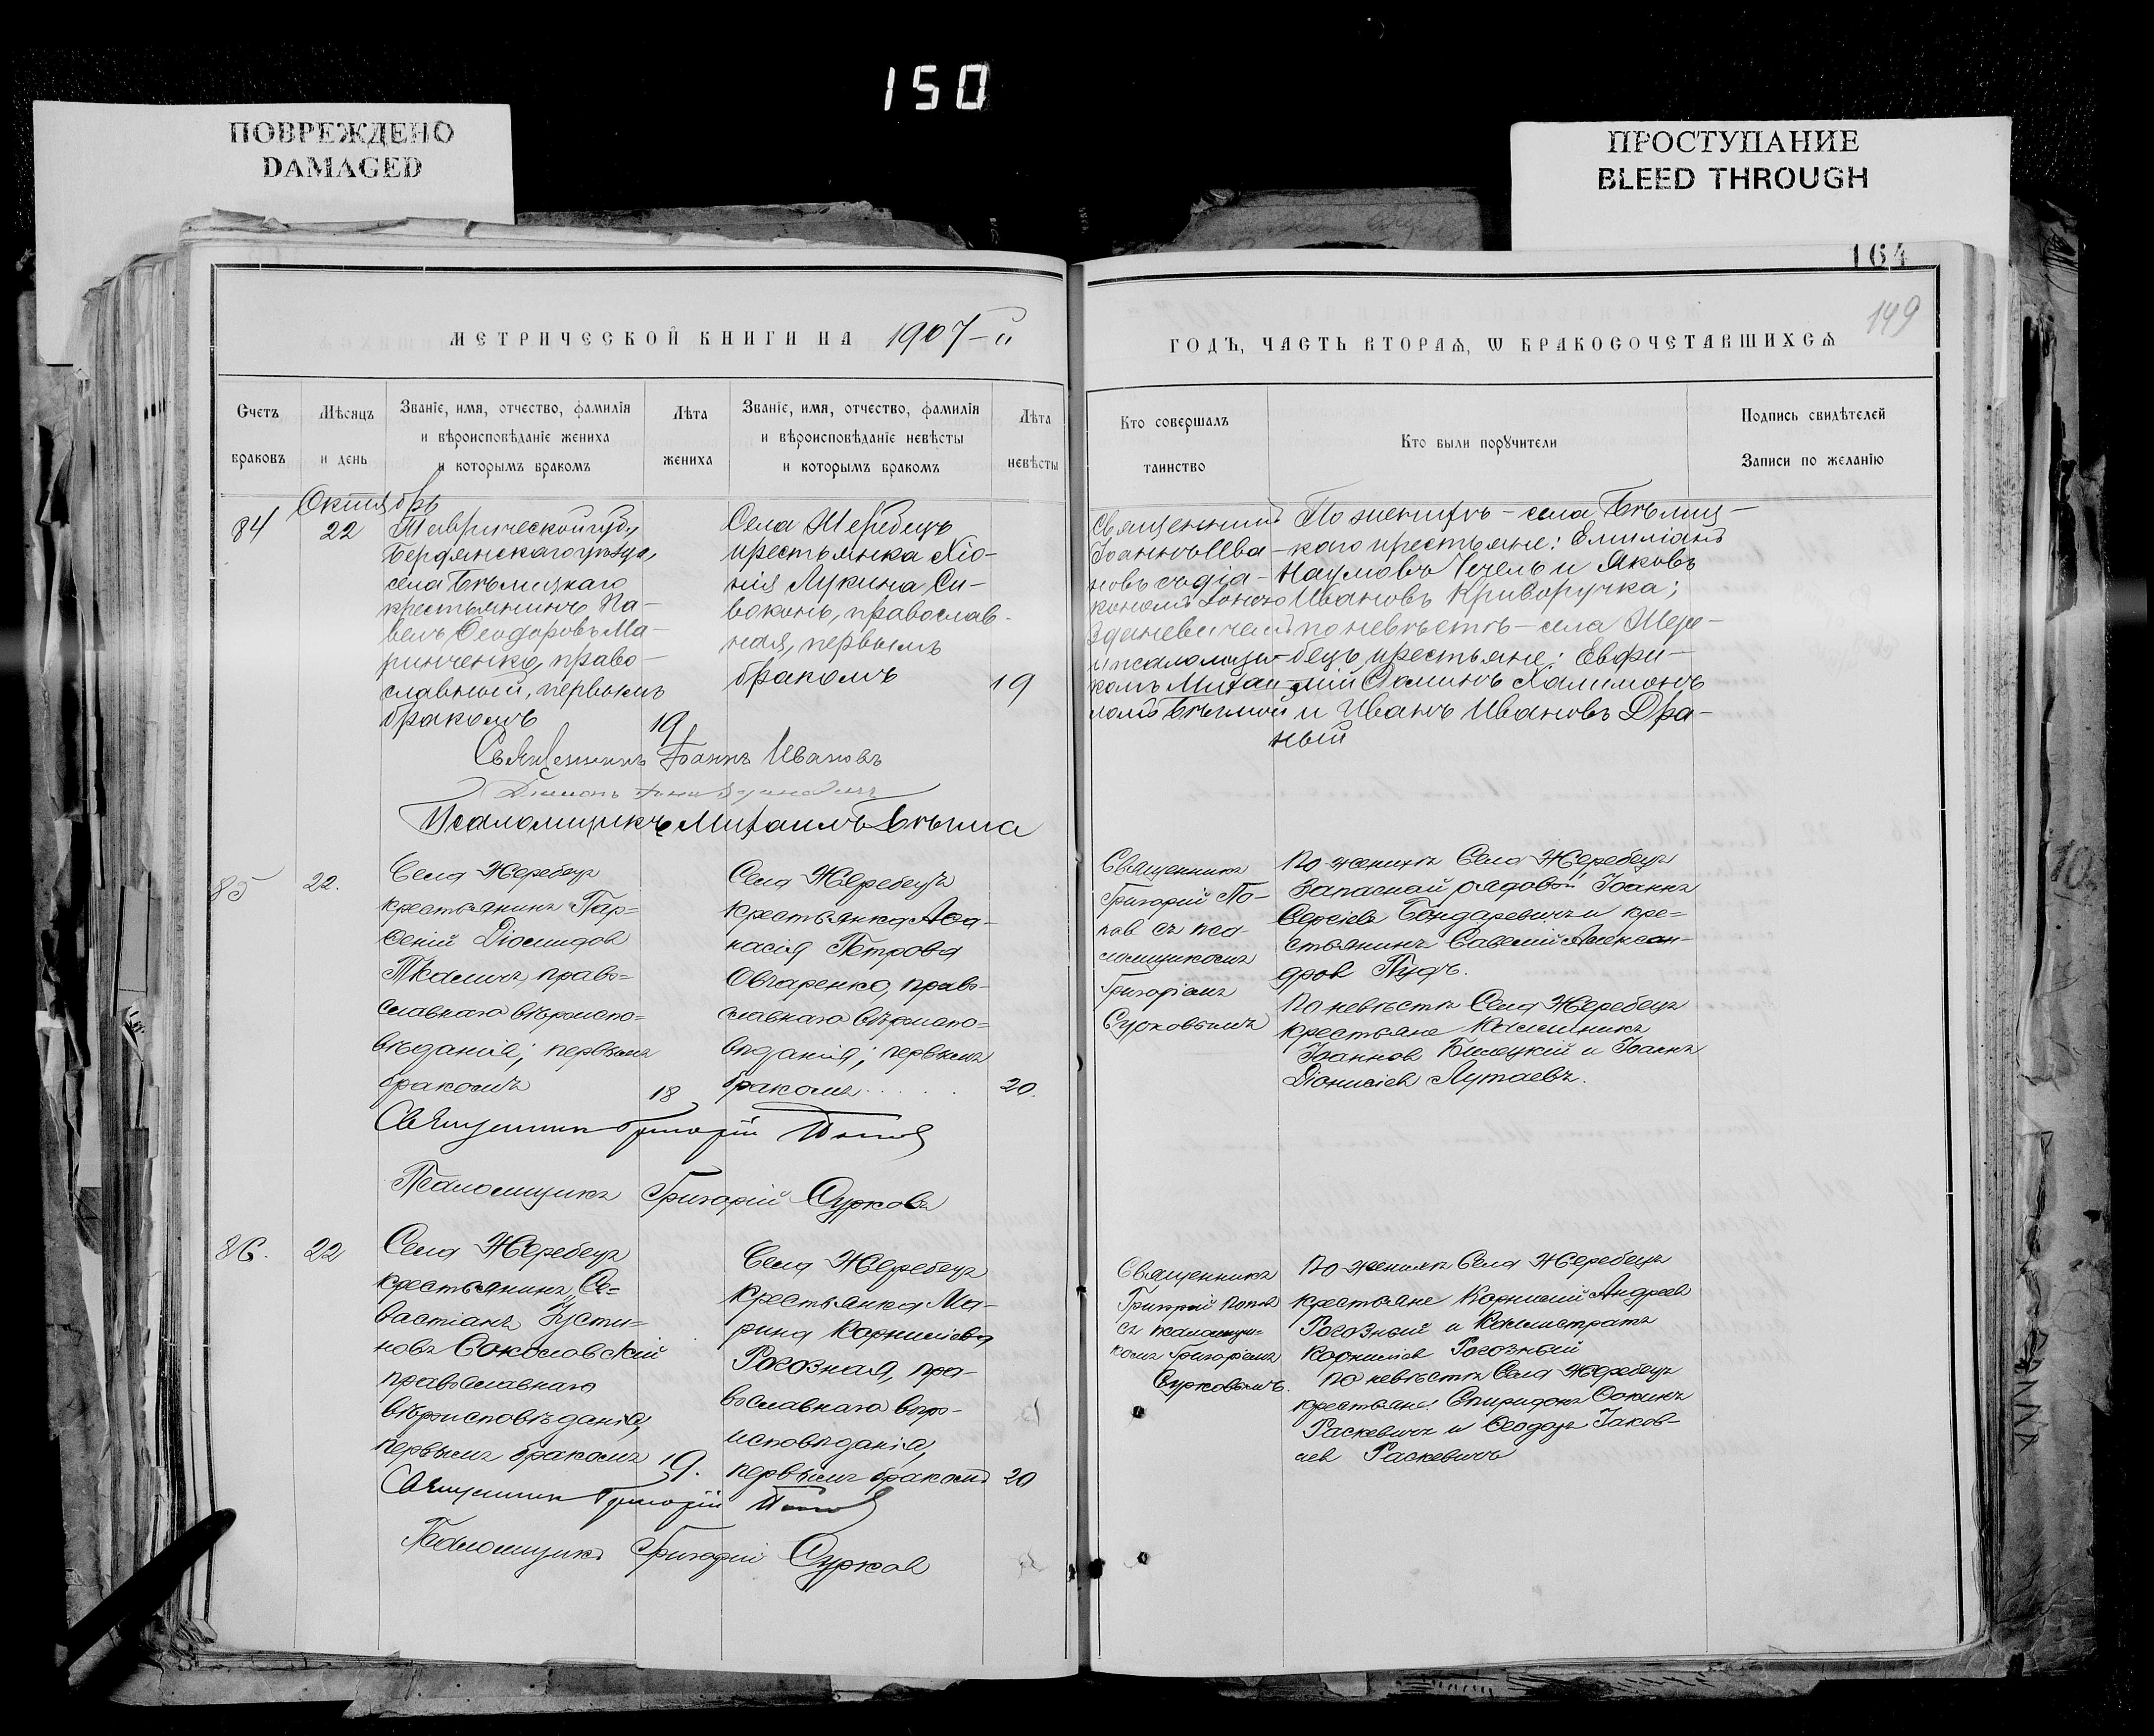 150
ПОВРЕЖДЕНО
DAMAGED
ПРОСТУПАНИЕ
BLEED THROUGH
164
149
МЕТРИЧЕСКОЙ КНИГИ НА 1907-й
ГОДЪ, ЧАСТЬ ВТОРАѦ, Ѡ БРАКОСОЧЕТАВШИХСѦ
Счетъ
браковъ
Мѣсяцъ
и день
Званіе, имя, отчество, фамилія
и вѣроисповѣданіе жениха
и которымъ бракомъ
Лѣта
жениха
Званіе, имя, отчество, фамилія
и вѣроисповѣданіе невѣсты
и которымъ бракомъ
Лѣта
невѣсты
Кто совершалъ
таинство
Кто были порꙋчители
Подпись свидѣтелей
Записи по желанію
Октябрь
84
22
Таврической губ.,
Бердянскаго уѣзда,
села Бѣлицкаго
крестьянинъ Па-
велъ Ѳеодоровъ Ма-
ринченко, право-
славный, первымъ
бракомъ
19
Села Жеребецъ
крестьянка Хіо-
нія Лукина Си-
воконь, православ-
ная, первымъ
бракомъ
19
Священникъ
Іоаннъ Ива-
новъ съ діа-
кономъ
Зданевичемъ
и псаломщи-
комъ Михаи-
ломъ Бѣлмой
По женихѣ - села Бѣлиц-
каго крестьяне: Емиліанъ
Наумовъ Чечель и Яковъ
Ивановъ Криворучка;
по невѣстѣ - села Жере-
бецъ крестьяне: Евфи-
мій Ѳоминъ Халимонъ
и Иванъ Ивановъ Дра-
ный
Священникъ Іоаннъ Ивановъ
Діаконъ
Псаломщикъ Михаилъ Бѣлма
85
22.
Села Жеребецъ
крестьянинъ Пар-
ѳеній Діомидов
Ткаличъ, право-
славнаго вѣроиспо-
вѣданія; первымъ
бракомъ
18
Села Жеребецъ
крестьянка Аѳа-
насія Петрова
Овчаренко, право-
славнаго вѣроиспо-
вѣданія; первымъ
бракомъ
20.
Священникъ
Григорій По-
пов съ пса-
ломщикомъ
Григоріемъ
Сурковымъ
По женихѣ Села Жеребецъ
Запасной рядовой Іоаннъ
Сергіевъ Бондаревичъ и кре-
стьянинъ Савелій Алексан-
дров Пудъ.
По невѣстѣ Села Жеребецъ
крестьяне Каллиникъ
Іоаннов Билецкій и Іоаннъ
Діонисіев Лутаевъ.
Священникъ Григорій Попов
Псаломщикъ Григорій Сурковъ
86.
22
Села Жеребецъ
крестьянинъ Се-
вастіанъ Іусти-
новъ Соколовскій
православнаго
вѣроисповѣданія,
первымъ бракомъ
19.
Села Жеребецъ
крестьянка Ма-
рина Корнилієва
Рогозная, пра-
вославнаго вѣро-
исповѣданія,
первымъ бракомъ
20
Священникъ
Григорій Попов
съ псаломщи-
комъ Григоріемъ
Сурковымъ.
По женихѣ Села Жеребецъ
крестьяне Корнилій Андреев
Рогозный и Каллистратъ
Корниліев Рогозный
По невѣстѣ Села Жеребецъ
крестьяне: Спиридонъ Ѳокинъ
Раскевичъ и Ѳеодоръ Іаков-
лев Раскевичъ
Священникъ Григорій Попов
Псаломщикъ Григорій Сурков